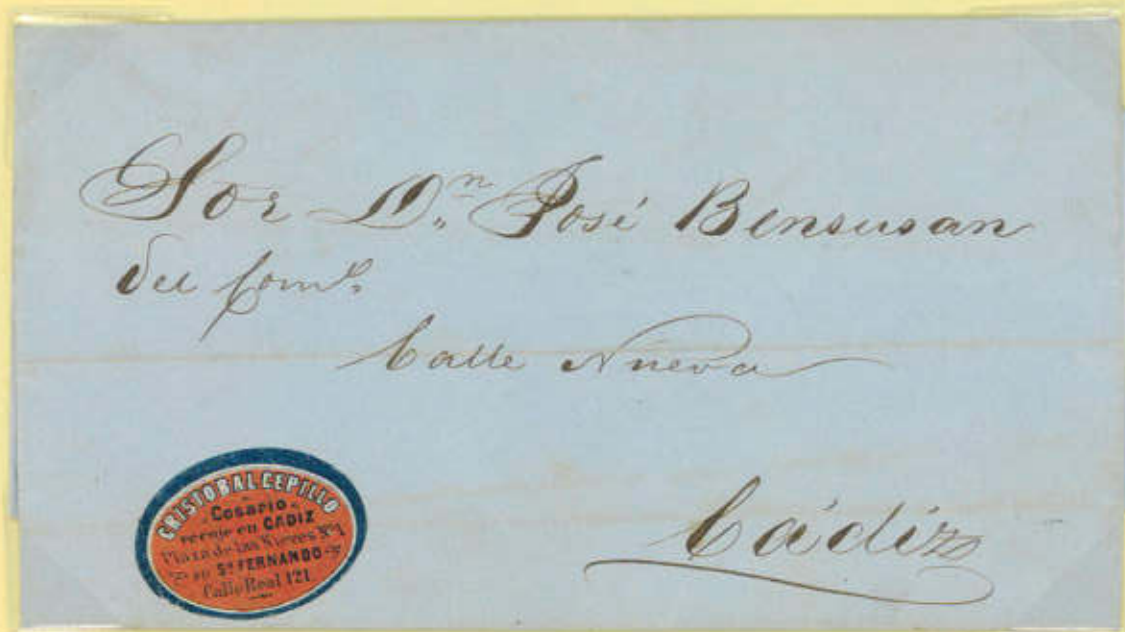 Sor D.n José Bensusan
del Com.o
Calle Nueva
Cádiz
CRISTOBAL CEPILLO
Cosario
recoje en CADIZ
Plaza de las Nieves Nº 1
y en Sn FERNANDO
Calle Real 121